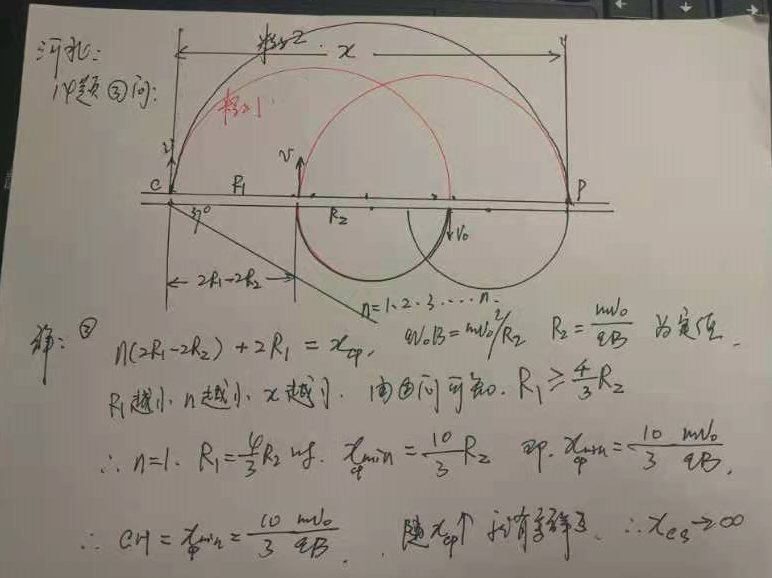 河北:
14题③问:
粒子2
x
粒子1
v
v
C
R₁
R₂
v₀
P
37°
2R₁-2R₂
n=1.2.3.....n.
解: ③
n(2R₁-2R₂)+2R₁=x_cp, qv₀B=mv₀²/R₂ R₂=mv₀/qB 为定值.
R₁越小 n越小 x越小. 由②问可知. R₁≥4/3R₂
∴ n=1. R₁=4/3R₂时. x_cp min=10/3R₂ 即. x_cp min=10/3 mv₀/qB.
∴ CH=x_cp min=10/3 mv₀/qB. 随x_cp↑ ∴x_cG→∞